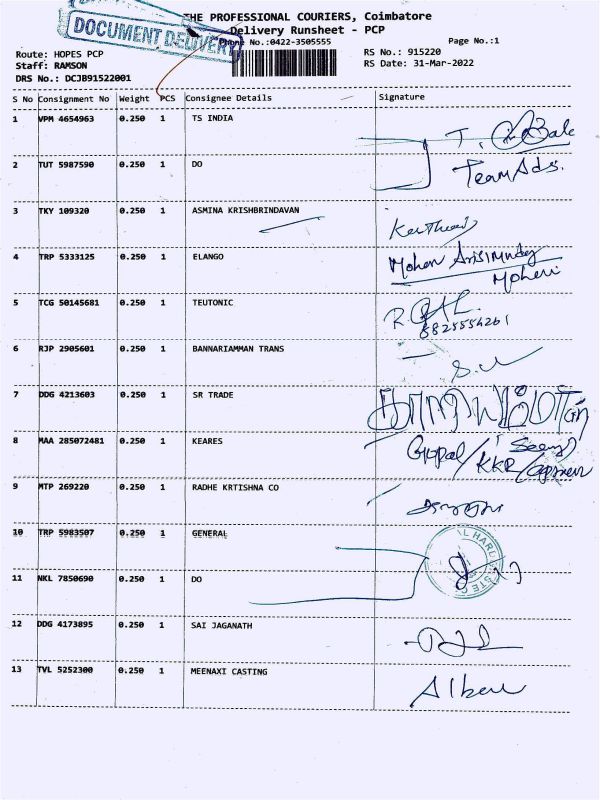 THE PROFESSIONAL COURIERS, Coimbatore
DOCUMENT DELIVERY
Delivery Runsheet - PCP
Phone No.:0422-3505555
Page No.:1
Route: HOPES PCP
RS No.: 915220
Staff: RAMSON
RS Date: 31-Mar-2022
DRS No.: DCJB91522001
S No Consignment No Weight PCS Consignee Details Signature
1 VPM 4654963 0.250 1 TS INDIA
2 TUT 5987590 0.250 1 DO Team Ads.
3 TKY 109320 0.250 1 ASMINA KRISHBRINDAVAN
4 TRP 5333125 0.250 1 ELANGO Mohan
5 TCG 50145681 0.250 1 TEUTONIC
6 RJP 2905601 0.250 1 BANNARIAMMAN TRANS
7 DDG 4213603 0.250 1 SR TRADE
8 MAA 285072481 0.250 1 KEARES Gopal/KKR/
9 MTP 269220 0.250 1 RADHE KRTISHNA CO
10 TRP 5983507 0.250 1 GENERAL
11 NKL 7850690 0.250 1 DO
12 DDG 4173895 0.250 1 SAI JAGANATH
13 TVL 5252300 0.250 1 MEENAXI CASTING